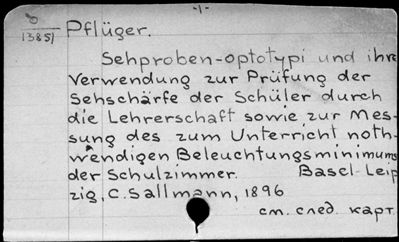 -1-
0
13851
Pflüger.
Sehproben-optotypi und ihre
Verwendung zur Prüfung der
Sehschärfe der Schüler durch
die Lehrerschaft sowie zur Mes-
sung des zum Unterricht noth-
wendigen Beleuchtungsminimums
der Schulzimmer. Basel-Leip
zig, C. Sallmann, 1896
см. след. карт.